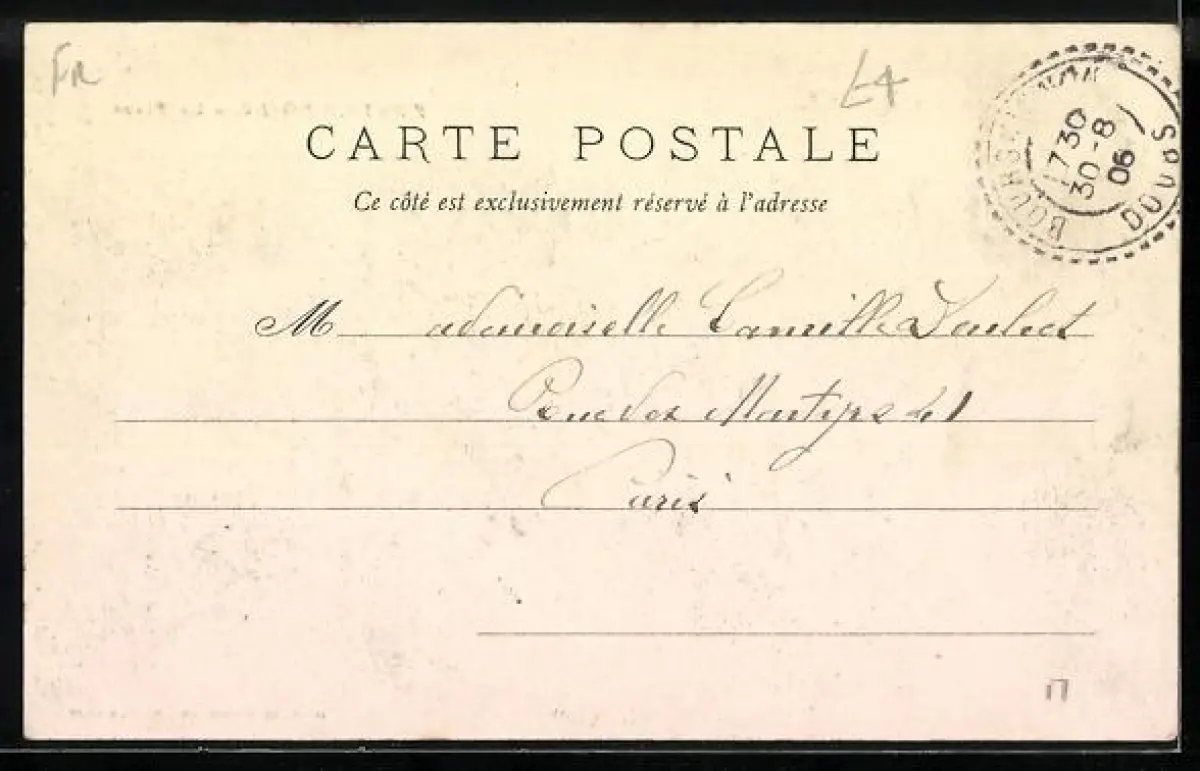 FR
L4
CARTE POSTALE
Ce côté est exclusivement réservé à l'adresse
BOURGUIGNON
1730
30-8
06
DOUBS
Mademoiselle Camille
Rue des Martyrs 41
Paris